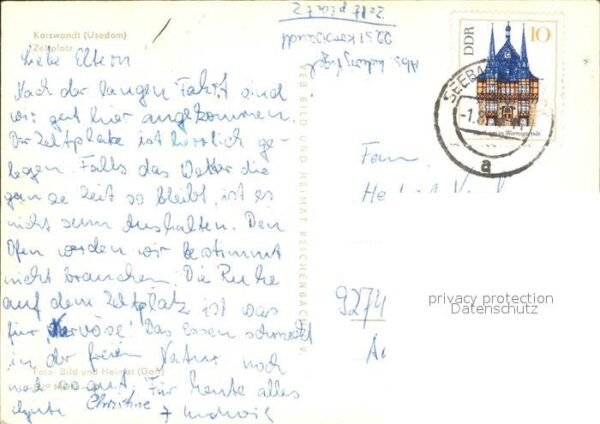 Korswandt (Usedom)
Zeltplatz
Liebe Eltern!
Nach der langen Fahrt sind
wir gut hier angekommen.
Der Zeltplatz ist herrlich ge-
legen. Falls das Wetter die
ganze Zeit so bleibt, ist es
nicht zum Aushalten. Den
Ofen werden wir bestimmt
nicht brauchen. Die Ruhe
auf dem Zeltplatz ist was
für "Nervöse! Das Essen schmeckt
in der freien Natur noch
mal so gut. Für heute alles
Gute Christine + Ludwig
Foto: Bild und Heimat
VEB BILD UND HEIMAT REICHENBACH
Abs. Ludwig
2251 Korswandt
Zeltplatz
DDR
10
Rathaus in Wernigerode
SEEBA
-1.8
a
Fam.
9274
privacy protection
Datenschutz